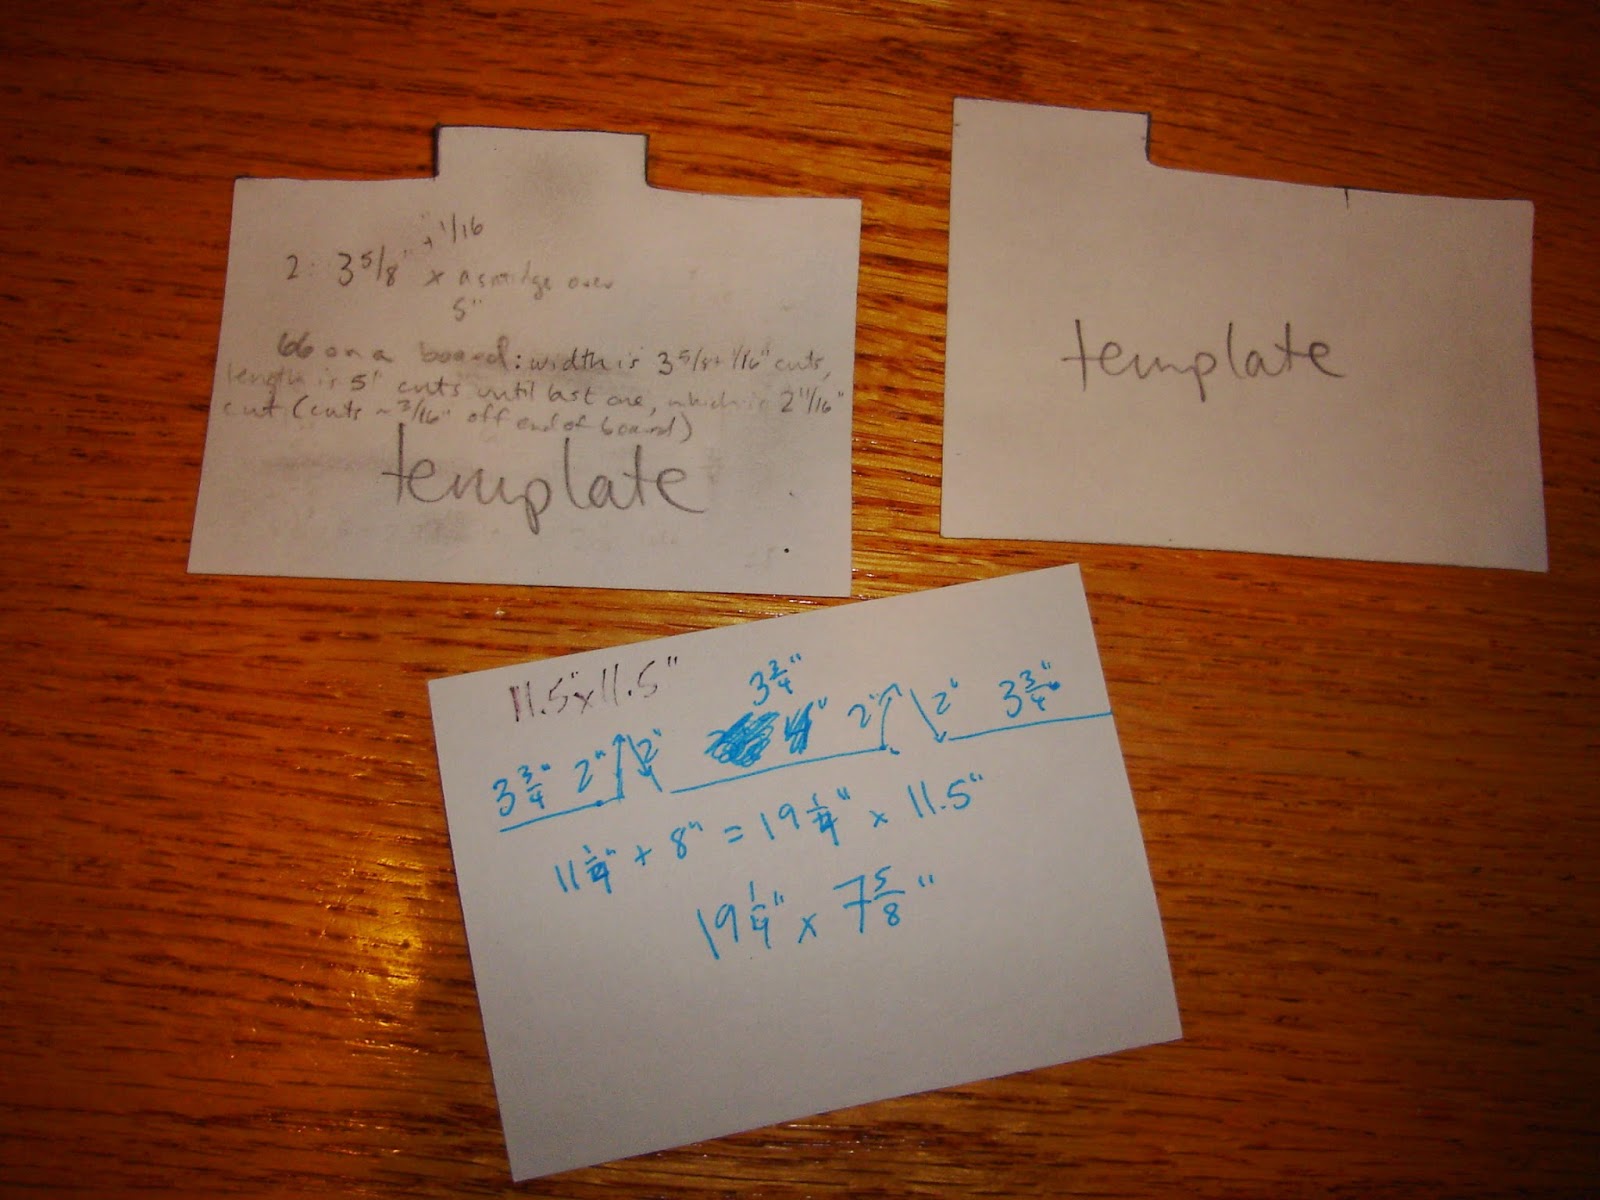 + 1/16
2: 3 5/8" x a smidge over
5"
66 on a board: width is 3 5/8 + 1/16" cuts,
length is 5" cuts until last one, which is 2 11/16"
cut (cuts ~ 3/16" off end of board)
template
template
11.5" x 11.5"
3 3/4"
3 3/4" 2" 2" 4" 2" 2" 3 3/4"
11 1/4" + 8" = 19 1/4" x 11.5"
19 1/4" x 7 5/8"